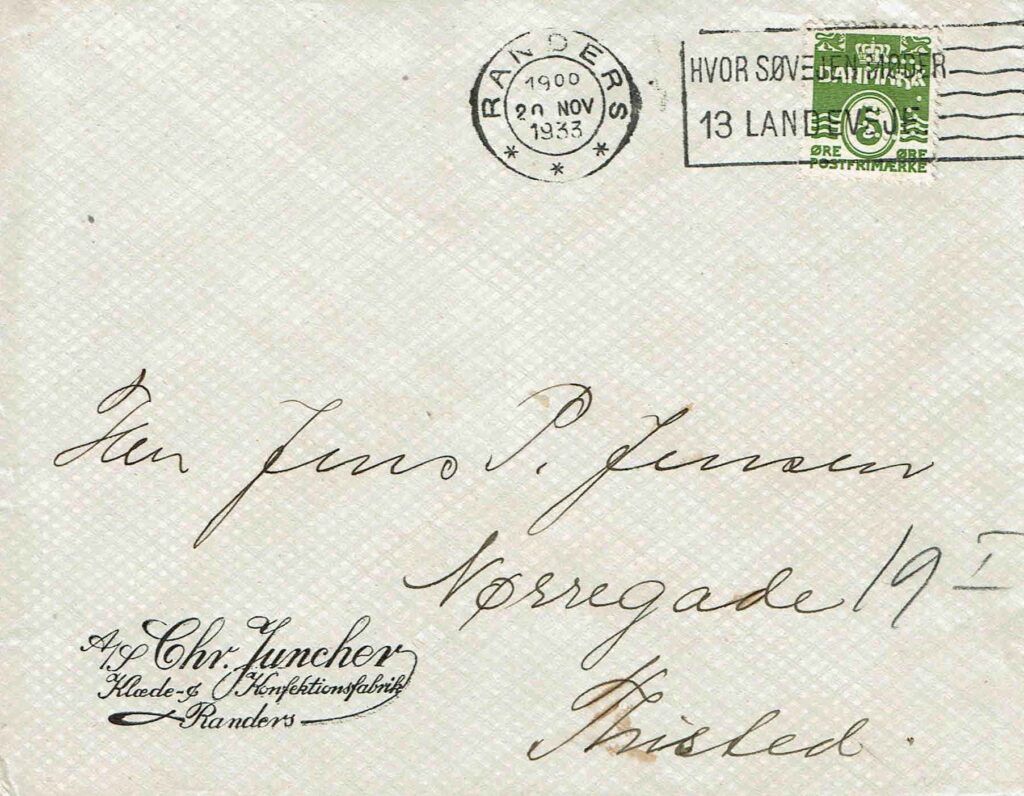 RANDERS
1900
20 NOV
1933
* * *
HVOR SØVEJEN MØDER
13 LANDEVEJE
DANMARK
5
ØRE ØRE
POSTFRIMÆRKE
Herr Jens P. Jensen
Nørregade 19 I
Thisted.
A/S Chr. Juncher
Klæde- & Konfektionsfabrik
Randers